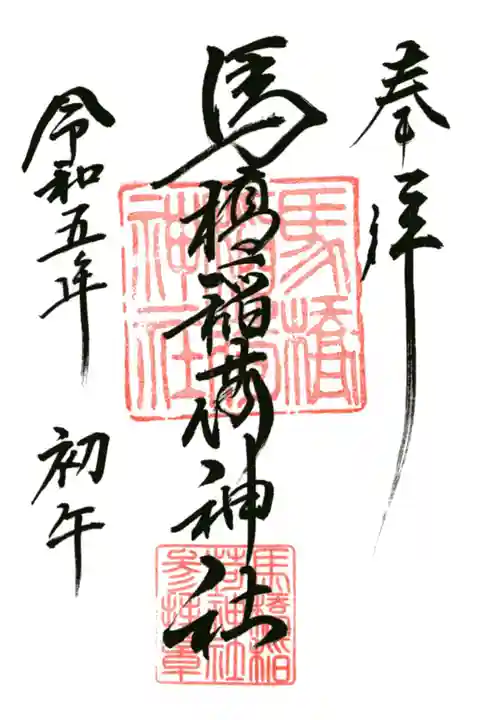 奉拝
馬橋稲荷神社
令和五年 初午
馬橋
稲荷
神社
馬橋稲
荷神社
参拝章